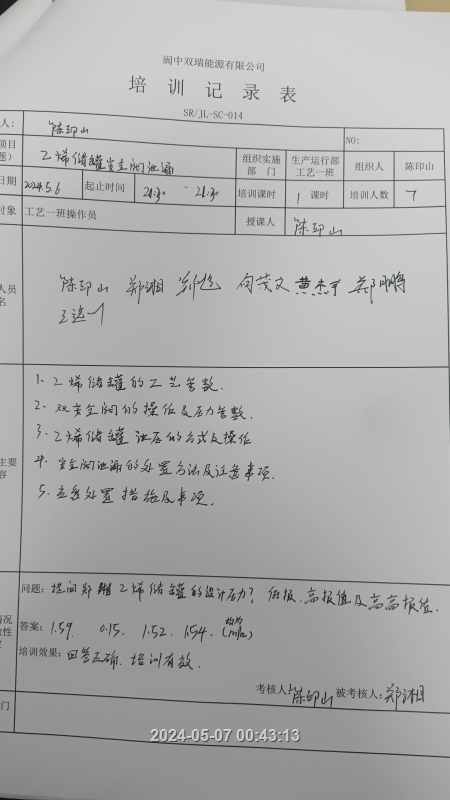 阆中双瑞能源有限公司
培训记录表
SR/JL-SC-014
人: 陈印山 NO:
项目 乙烯储罐安全阀泄漏 组织实施部门 生产运行部工艺一班 组织人 陈印山
日期 2024.5.6 起止时间 21:30 ~ 21:30 培训课时 1 课时 培训人数 7
对象 工艺一班操作员 授课人 陈印山
人员
名
陈印山 郑湘 苟茂文 黄杰平 郑鹏
主要
容
1. 乙烯储罐的工艺参数.
2. 双安全阀的操作及压力参数.
3. 乙烯储罐泄压的方式及操作
4. 安全阀泄漏的处置方法及注意事项.
5. 应急处置措施及事项.
情况
效性
问题: 提问郑湘乙烯储罐的设计压力? 低报、高报值及高高报值.
答案: 1.59. 0.15. 1.52. 1.54. (均为MPa)
培训效果: 回答正确. 培训有效.
考核人: 陈印山 被考核人: 郑湘
门
2024-05-07 00:43:13